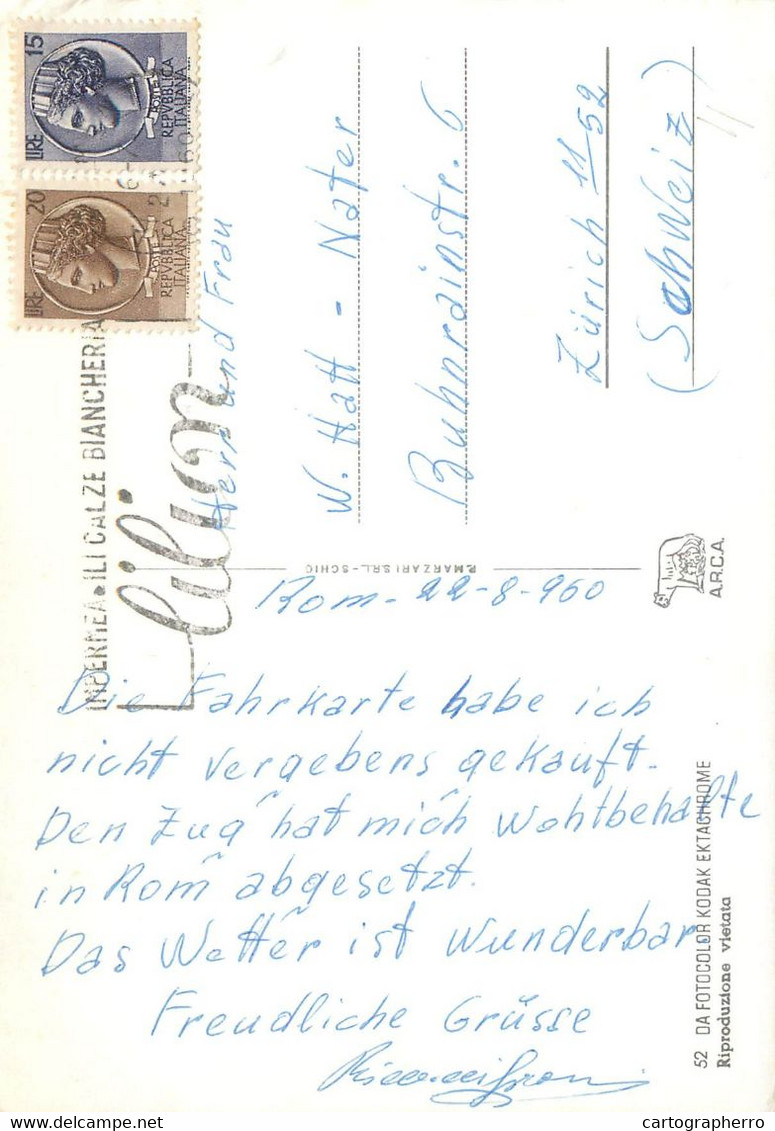 LIRE 15
POSTE
REPVBBLICA
ITALIANA
LIRE 20
POSTE
REPVBBLICA
ITALIANA
IMPERMEA•ILI CALZE BIANCHERIA
Lilion
Herr und Frau
W. Hatt - Nater
Buhnrainstr. 6
Zürich 11/52
(Schweiz)
P. MARZARI S.R.L. - SCHIO
A.R.C.A.
Rom - 22-8-960
Die Fahrkarte habe ich
nicht vergebens gekauft.
Den Zug hat mich wohtbehalte
in Rom abgesetzt.
Das Wetter ist wunderbar,
Freudliche Grüsse
52 DA FOTOCOLOR KODAK EKTACHROME
Riproduzione vietata
cartographerro
delcampe.net
cartographerro